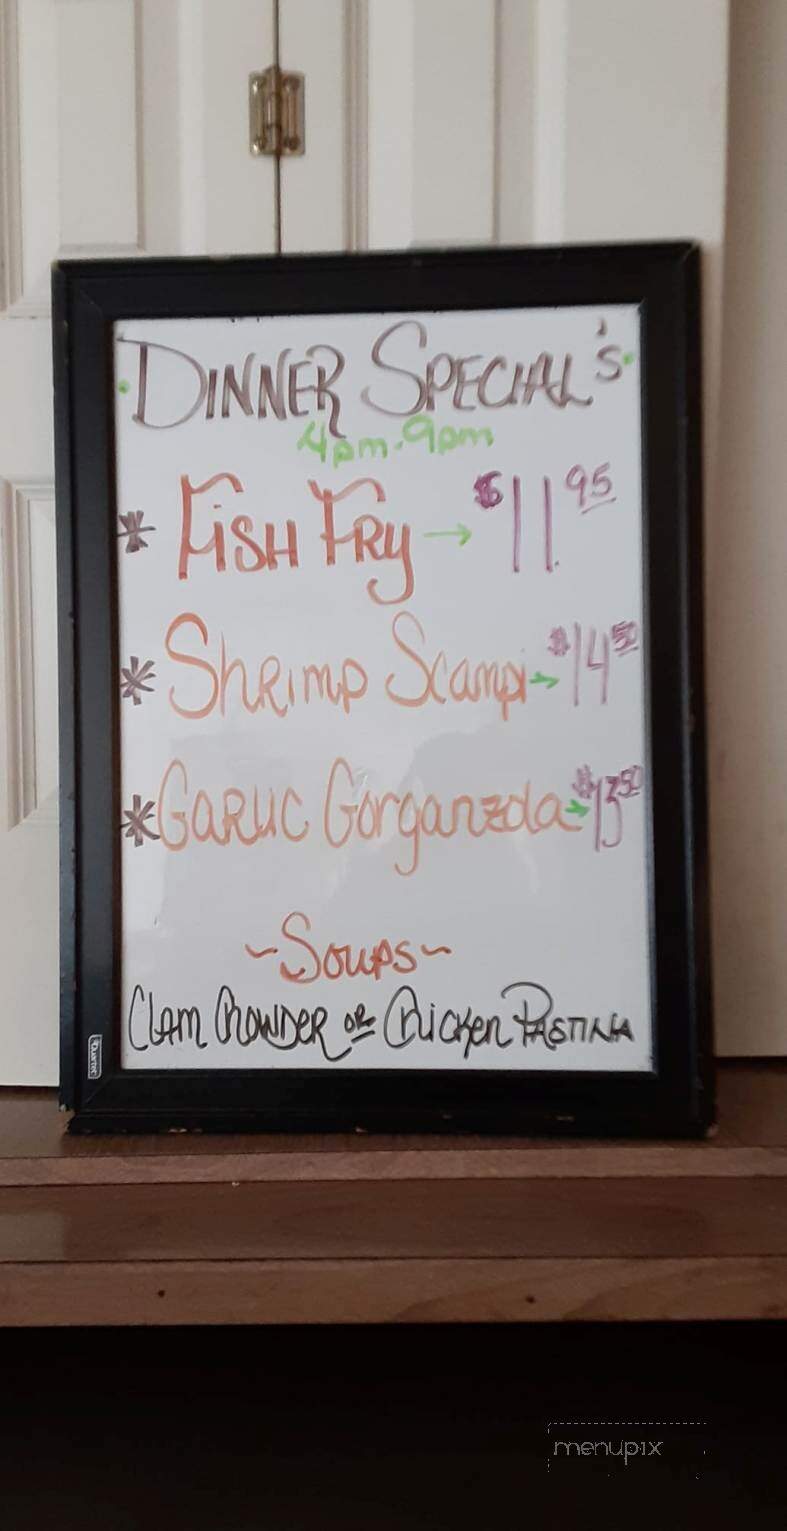 DINNER SPECIAL'S
4pm-9pm
* FISH FRY → $11.95
* SHRIMP Scampi → $14 50
* GARLIC Gorganzola → $13 50
~SOUPS~
CLAM CHOWDER OR CHICKEN PASTINA
QUARTET
menupix